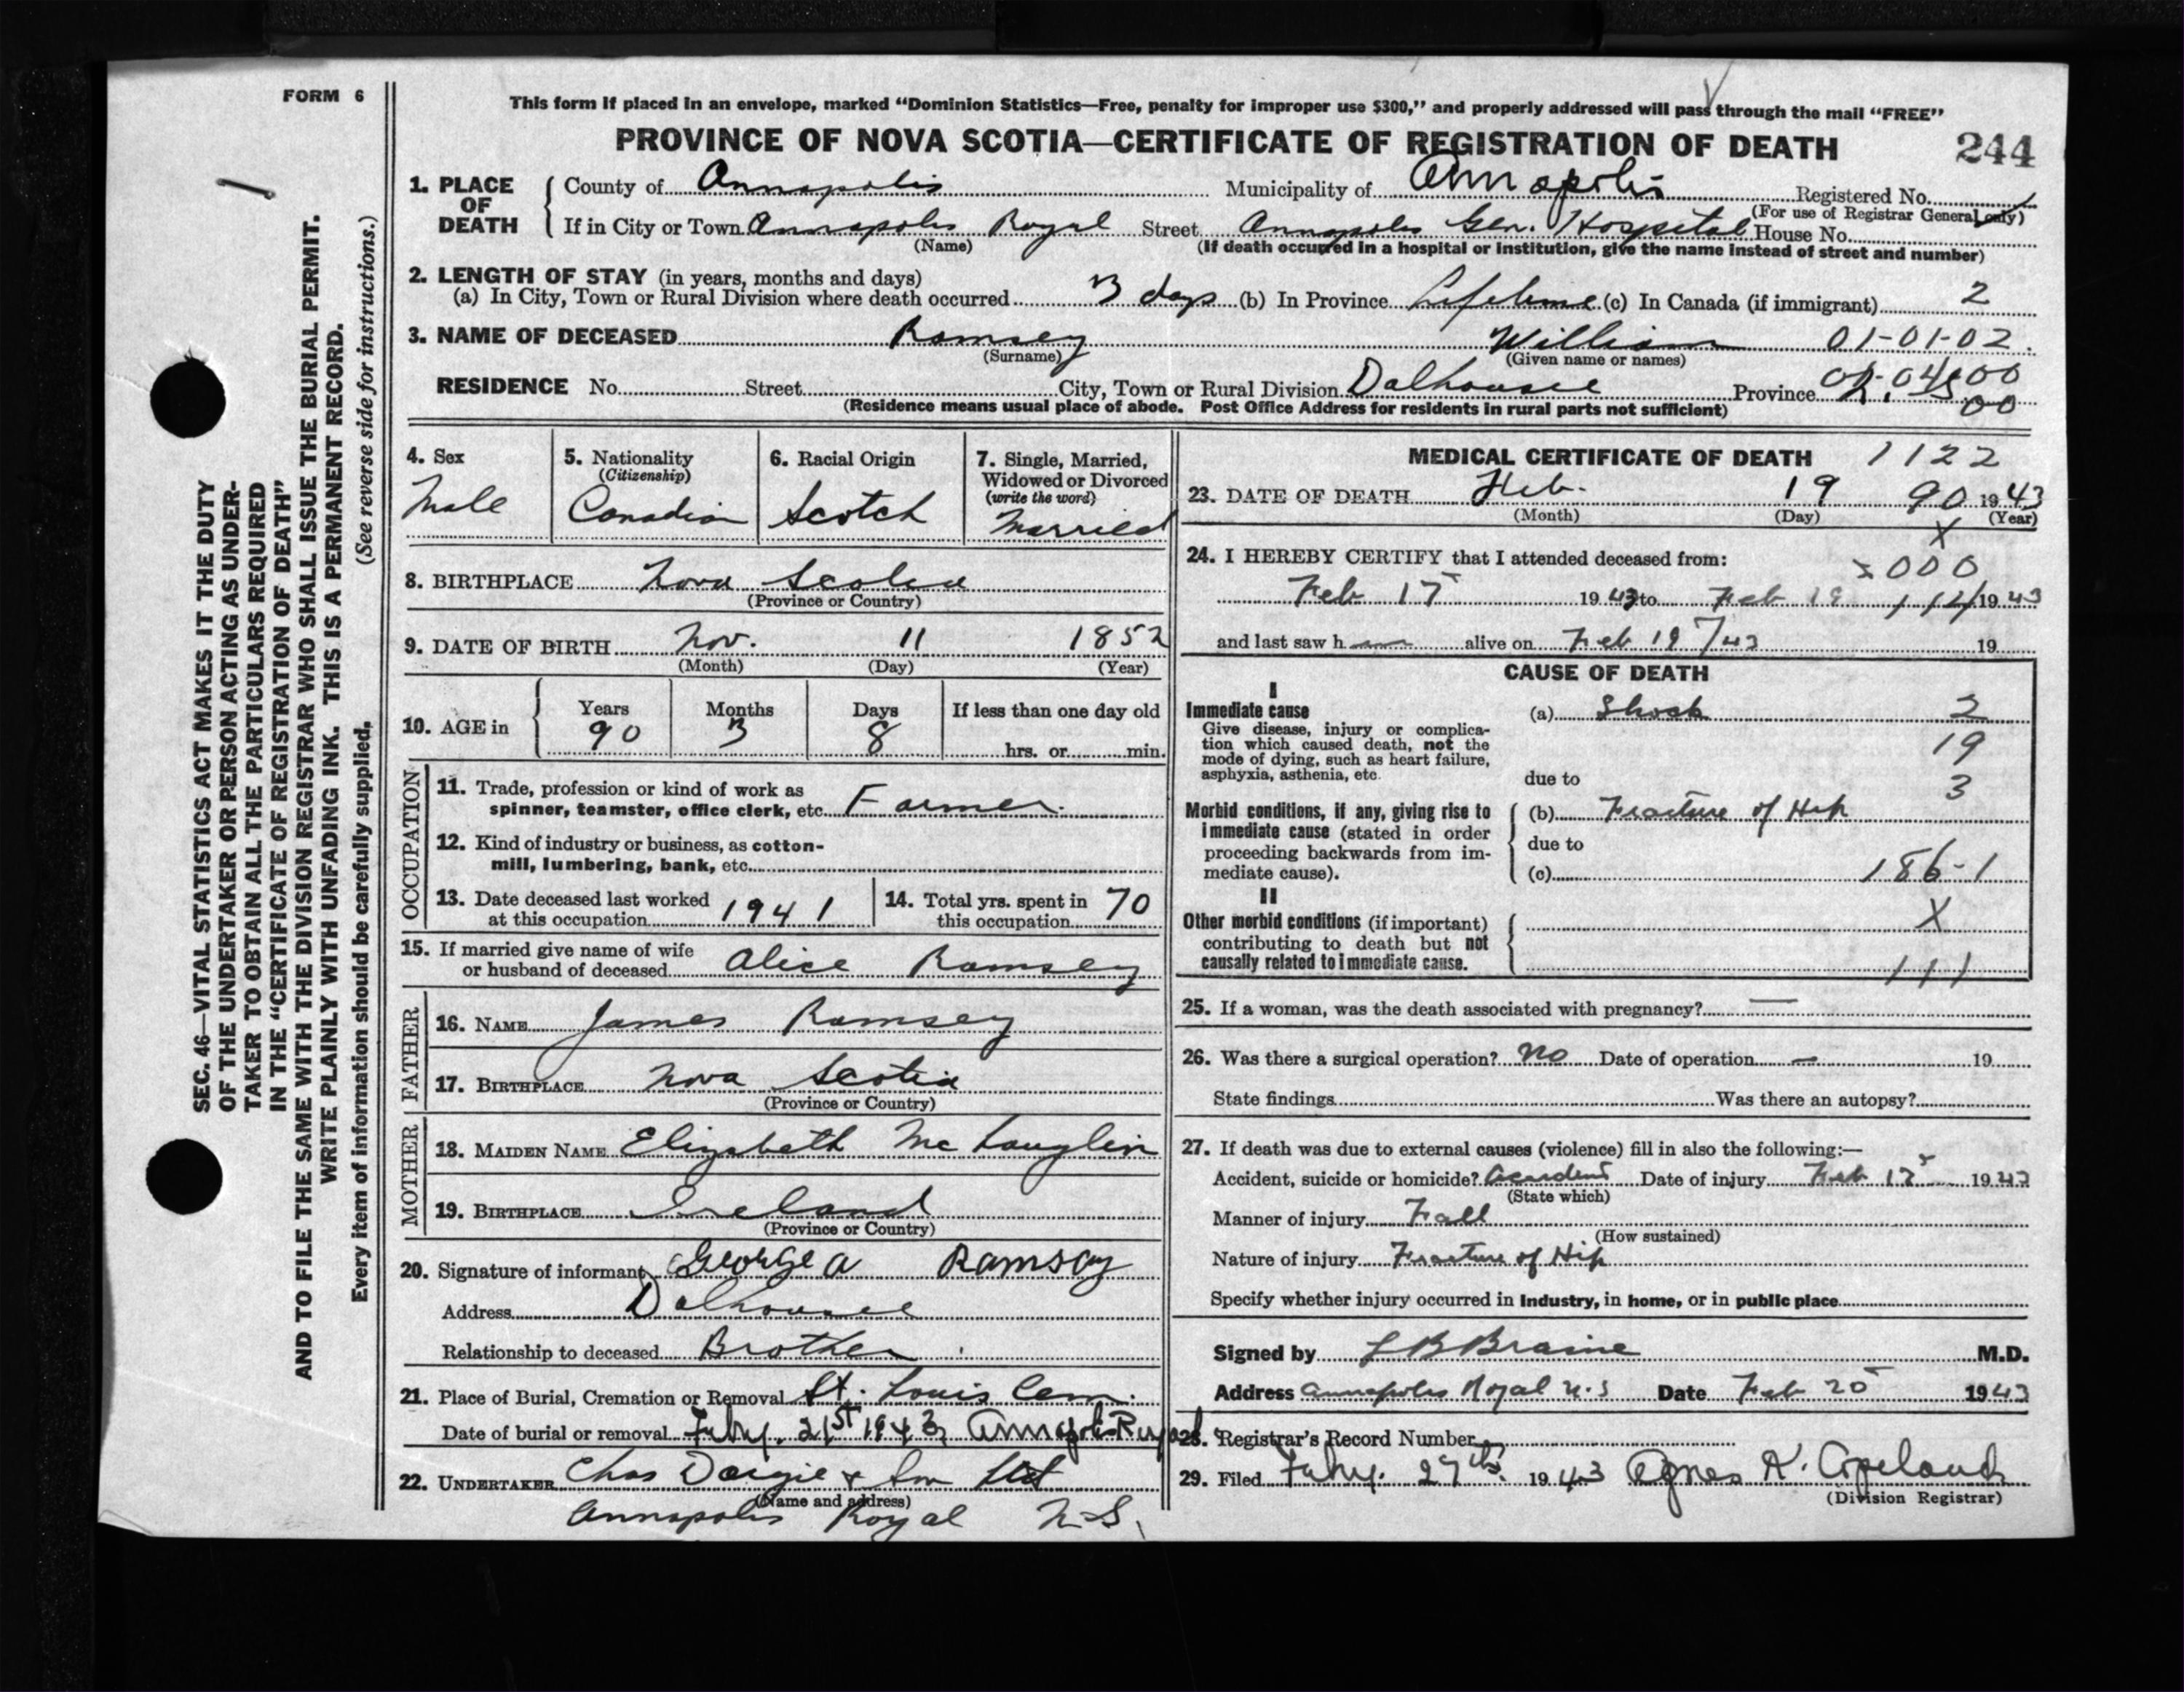 FORM 6
This form if placed in an envelope, marked “Dominion Statistics—Free, penalty for improper use $300,” and properly addressed will pass through the mail “FREE”
PROVINCE OF NOVA SCOTIA—CERTIFICATE OF REGISTRATION OF DEATH 244
SEC. 46—VITAL STATISTICS ACT MAKES IT THE DUTY
OF THE UNDERTAKER OR PERSON ACTING AS UNDER-
TAKER TO OBTAIN ALL THE PARTICULARS REQUIRED
IN THE “CERTIFICATE OF REGISTRATION OF DEATH”
AND TO FILE THE SAME WITH THE DIVISION REGISTRAR WHO SHALL ISSUE THE BURIAL PERMIT.
WRITE PLAINLY WITH UNFADING INK. THIS IS A PERMANENT RECORD.
Every item of information should be carefully supplied. (See reverse side for instructions.)
1. PLACE OF DEATH County of Annapolis Municipality of Annapolis Registered No.
(For use of Registrar General only)
If in City or Town Annapolis Royal Street Annapolis Gen. Hospital House No.
(Name) (If death occurred in a hospital or institution, give the name instead of street and number)
2. LENGTH OF STAY (in years, months and days)
(a) In City, Town or Rural Division where death occurred 3 days (b) In Province Lifetime (c) In Canada (if immigrant) 2
3. NAME OF DECEASED Ramsey William 01-01-02
(Surname) (Given name or names)
RESIDENCE No. Street City, Town or Rural Division Dalhousie Province
(Residence means usual place of abode. Post Office Address for residents in rural parts not sufficient) 00
4. Sex Male
5. Nationality (Citizenship) Canadian
6. Racial Origin Scotch
7. Single, Married, Widowed or Divorced (write the word) Married
8. BIRTHPLACE Nova Scotia
(Province or Country)
9. DATE OF BIRTH Nov. 11 1852
(Month) (Day) (Year)
10. AGE in Years 90 Months 3 Days 8 If less than one day old
hrs. or min.
OCCUPATION
11. Trade, profession or kind of work as
spinner, teamster, office clerk, etc. Farmer
12. Kind of industry or business, as cotton-
mill, lumbering, bank, etc.
13. Date deceased last worked at this occupation 1941
14. Total yrs. spent in this occupation 70
15. If married give name of wife
or husband of deceased Alice Ramsey
FATHER
16. NAME James Ramsey
17. BIRTHPLACE Nova Scotia
(Province or Country)
MOTHER
18. MAIDEN NAME Elizabeth McLauglin
19. BIRTHPLACE Ireland
(Province or Country)
20. Signature of informant George A Ramsay
Address Dalhousie
Relationship to deceased Brother
21. Place of Burial, Cremation or Removal St. Louis Cem.
Date of burial or removal Feby. 21st 1943 Annapolis Royal
22. UNDERTAKER Chas Dargie & Son Ltd
(Name and address)
Annapolis Royal N.S.
MEDICAL CERTIFICATE OF DEATH 1122
23. DATE OF DEATH Feb. 19 90 1943
(Month) (Day) (Year)
X
24. I HEREBY CERTIFY that I attended deceased from:
000
Feb 17 1943 to Feb 19 1943
and last saw h alive on Feb 19/43 19
CAUSE OF DEATH
I
Immediate cause (a) Shock 2
Give disease, injury or complica-
tion which caused death, not the 19
mode of dying, such as heart failure,
asphyxia, asthenia, etc. due to 3
Morbid conditions, if any, giving rise to (b) Fracture of Hip
immediate cause (stated in order
proceeding backwards from im- due to
mediate cause). (c) 186-1
II
Other morbid conditions (if important) X
contributing to death but not
causally related to immediate cause. 111
25. If a woman, was the death associated with pregnancy? —
26. Was there a surgical operation? No Date of operation — 19
State findings Was there an autopsy?
27. If death was due to external causes (violence) fill in also the following:—
Accident, suicide or homicide? Accident Date of injury Feb 1943
(State which)
Manner of injury Fall
(How sustained)
Nature of injury Fracture of Hip
Specify whether injury occurred in Industry, in home, or in public place
Signed by L B Braine M.D.
Address Annapolis Royal N.S Date Feb 20 1943
28. Registrar's Record Number
29. Filed Feby. 27th 1943 Agnes K. Copeland
(Division Registrar)